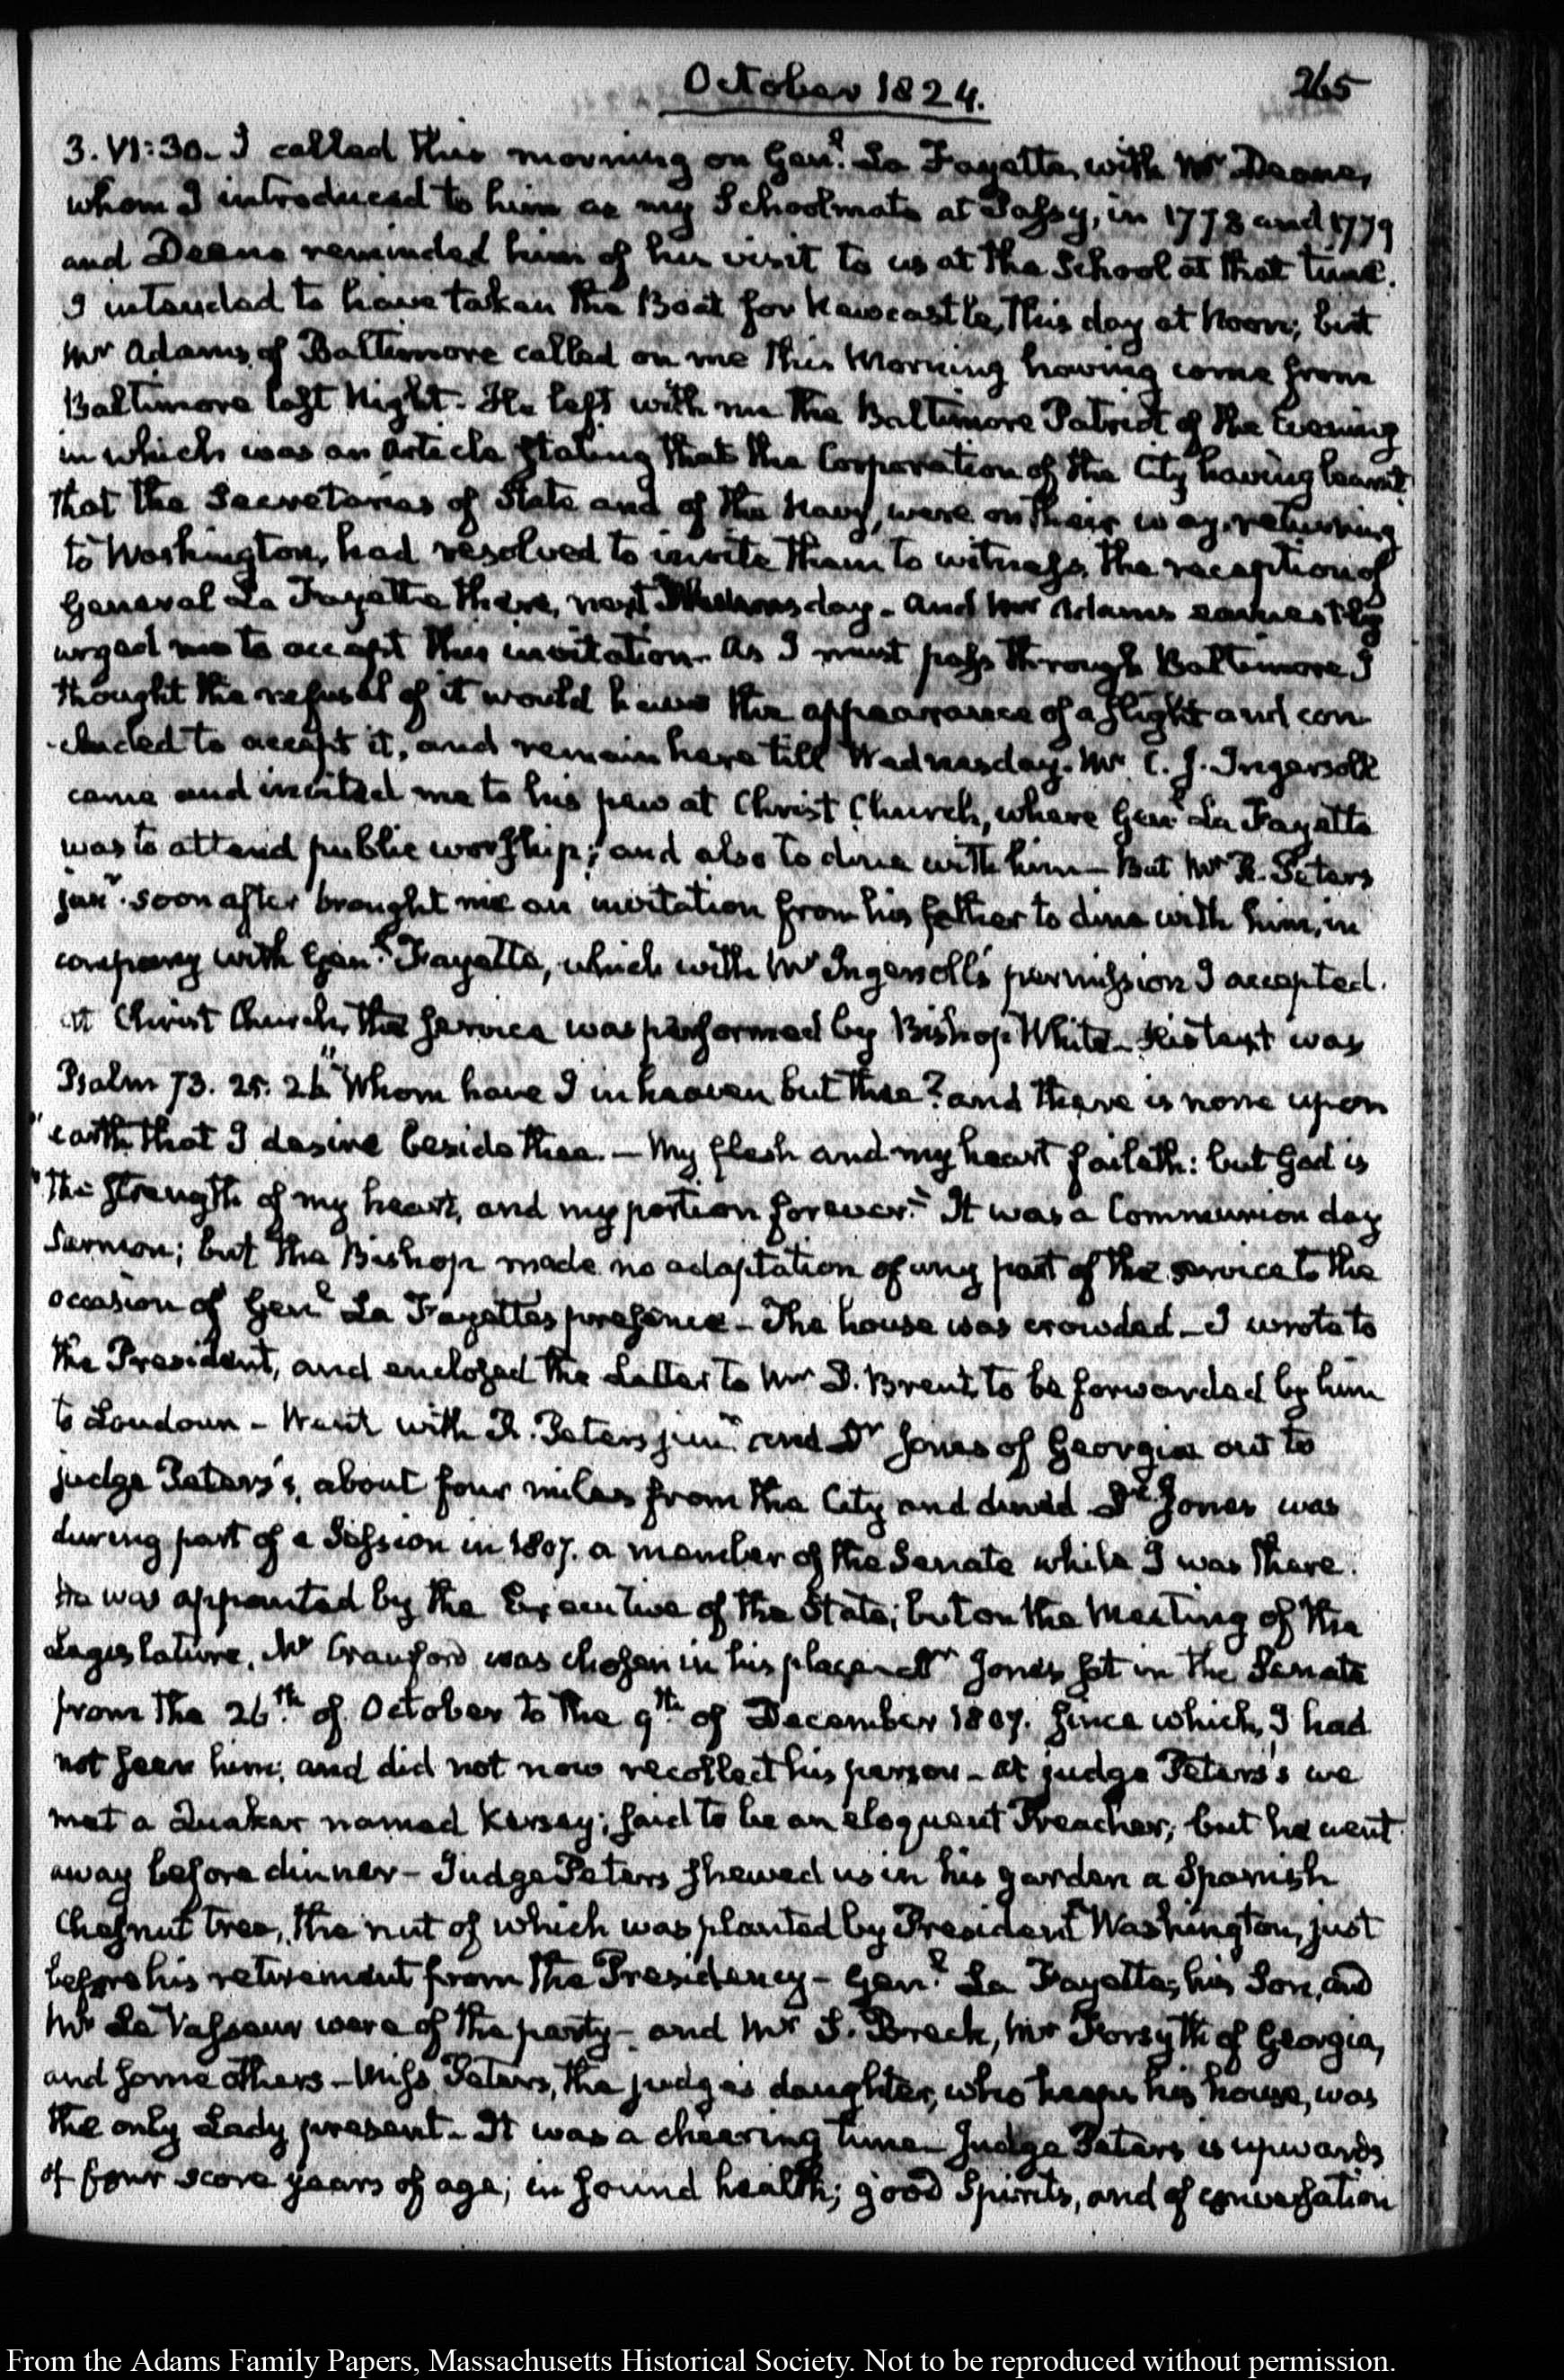 October 1824.
265
3. VI:30. I called this morning on Gen.l La Fayette, with Mr Deane,
whom I introduced to him as my Schoolmate at Passy, in 1778 and 1779
and Deane reminded him of his visit to us at the School at that time.
I intended to have taken the Boat for Newcastle, this day at Noon; but
Mr Adams of Baltimore called on me this Morning having come from
Baltimore last Night. He left with me the Baltimore Patriot of the Evening
in which was an article stating that the Corporation of the City having learnt
that the Secretaries of State and of the Navy, were on their way returning
to Washington, had resolved to invite them to witness the reception of
General La Fayette there, next day. and Mr Adams earnestly
urged me to accept this invitation. As I must pass through Baltimore I
thought the refusal of it would have the appearance of a slight and con-
-cluded to accept it, and remain here till Wednesday. Mr C. J. Ingersoll
came and invited me to his pew at Christ Church, where Gen.l La Fayette
was to attend public worship; and also to dine with him — But Mr R. Peters
junr. soon after brought me an invitation from his father to dine with him, in
company with Gen.l Fayette, which with Mr Ingersoll's permission I accepted.
At Christ Church, the service was performed by Bishop White. His text was
Psalm 73. 25. 26. "Whom have I in heaven but thee? and there is none upon
"earth that I desire beside thee. — My flesh and my heart faileth: but God is
"the strength of my heart, and my portion forever." It was a Communion day
Sermon; but the Bishop made no adaptation of any part of the service to the
occasion of Gen.l La Fayettes presence — The house was crowded — I wrote to
the President, and enclosed the Letter to Mr D. Brent, to be forwarded by him
to Loudoun — Went with R. Peters junr and Dr Jones of Georgia out to
judge Peters's, about four miles from the City and dined. Dr. Jones was
during part of a Session in 1807. a member of the Senate while I was there.
He was appointed by the Executive of the State; but on the Meeting of the
Legislature, Mr Crawford was chosen in his place and Dr Jones sat in the Senate
from the 26.th of October to the 9th of December 1807. since which, I had
not seen him; and did not now recollect his person — At judge Peters's we
met a Quaker named Kersey; said to be an eloquent Preacher; but he went
away before dinner — Judge Peters shewed us in his garden a Spanish
Chesnut tree, the nut of which was planted by President Washington, just
before his retirement from the Presidency — Gen.l La Fayette, his Son, and
Mr Le Vasseur were of the party — and Mr S. Breck, Mr Forsyth of Georgia,
and some others — Miss Peters, the judge's daughter, who keeps his house, was
the only Lady present. It was a cheering time — Judge Peters is upwards
of four score years of age; in sound health; good Spirits, and of conversation
From the Adams Family Papers, Massachusetts Historical Society. Not to be reproduced without permission.